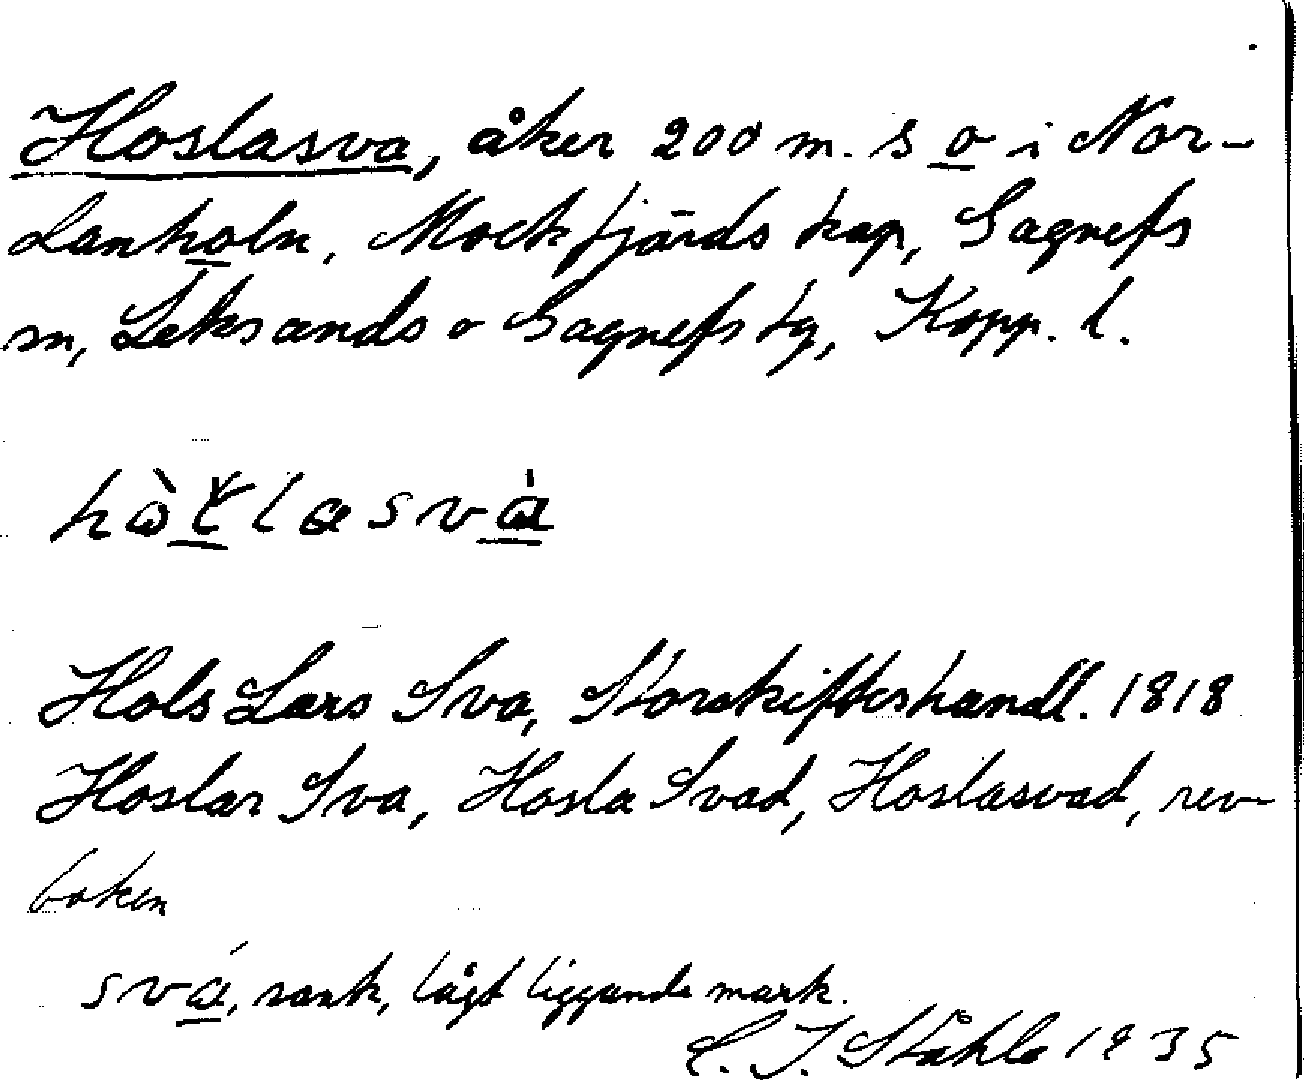 Hoslasva, åker 200 m. s o i Nor-
Lanholn, Mockfjärds kap, Gagnefs
sn, Leksands o Gagnefs tg, Kopp. l.
Hols Lars Sva, Storskifteshandl. 1818
Hoslar Sva, Hosla Svad, Hoslasvad, rev-
boken
svá, sank, lågt liggande mark.
C. I. Ståhle 1935